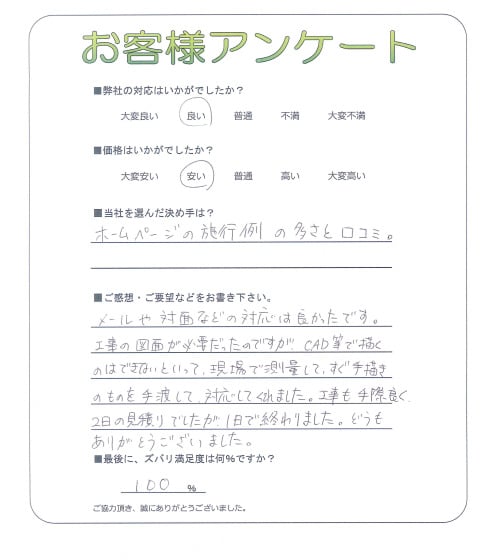 お客様アンケート
■弊社の対応はいかがでしたか？
大変良い 良い 普通 不満 大変不満
■価格はいかがでしたか？
大変安い 安い 普通 高い 大変高い
■当社を選んだ決め手は？
ホームページの施行例の多さと口コミ。
■ご感想・ご要望などをお書き下さい。
メールや対面などの対応は良かったです。
工事の図面が必要だったのですが、CAD等で描く
のはできないといって、現場で測量して、すぐ手描き
のものを手渡して、対応してくれました。工事も手際良く、
2日の見積りでしたが、1日で終わりました。どうも
ありがとうございました。
■最後に、ズバリ満足度は何％ですか？
100 ％
ご協力頂き、誠にありがとうございました。